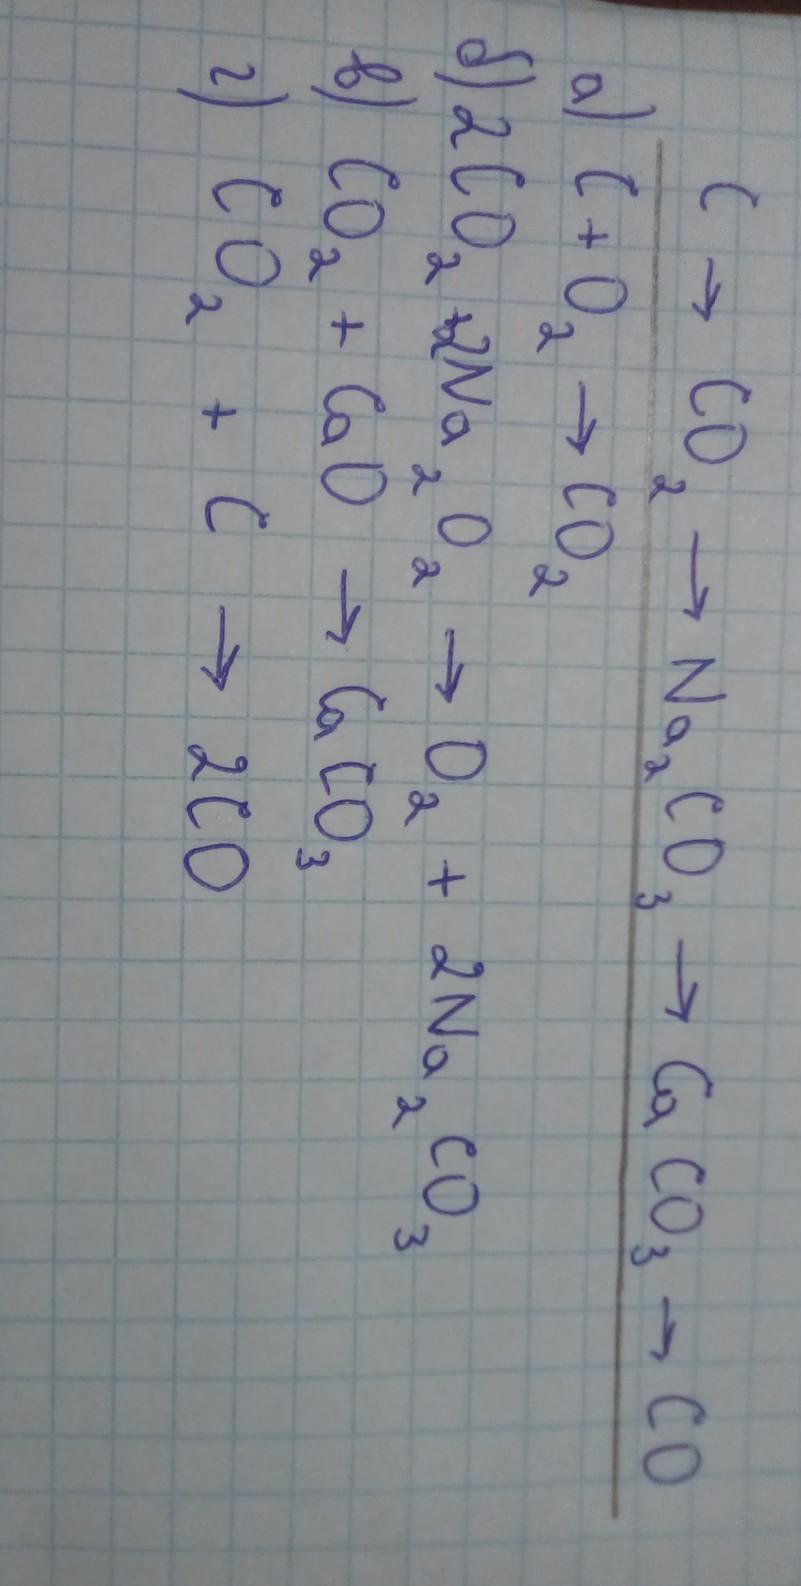 C → CO₂ → Na₂CO₃ → CaCO₃ → CO
а) C + O₂ → CO₂
б) 2CO₂ + 2Na₂O₂ → O₂ + 2Na₂CO₃
в) CO₂ + CaO → CaCO₃
г) CO₂ + C → 2CO